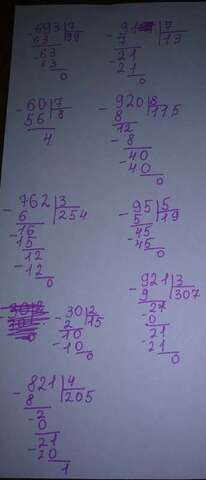 -693|7
63 |99
-63
63
0
-91|7
7 |13
-21
21
0
-60|7
56|8
4
-920|8
8 |115
12
-8
-40
40
0
-762|3
6 |254
-16
15
-12
12
0
-95|5
5 |19
-45
45
0
-30|2
2 |15
-10
10
0
-921|3
9 |307
-2
0
-21
21
0
-821|4
8 |205
-2
0
-21
20
1